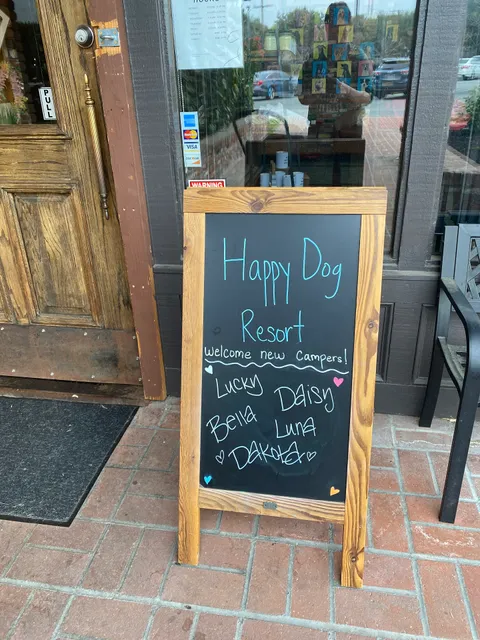 HOURS
PULL
VISA
WARNING
Happy Dog
Resort
Welcome new Campers!
Lucky Daisy
Bella Luna
Dakota